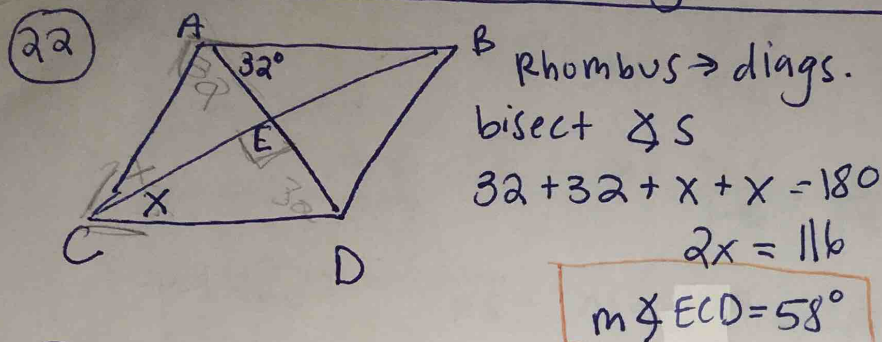 22
A
B
32°
E
x
C
D
Rhombus → diags.
bisect ∡s
32 + 32 + x + x = 180
2x = 116
m∡ECD = 58°